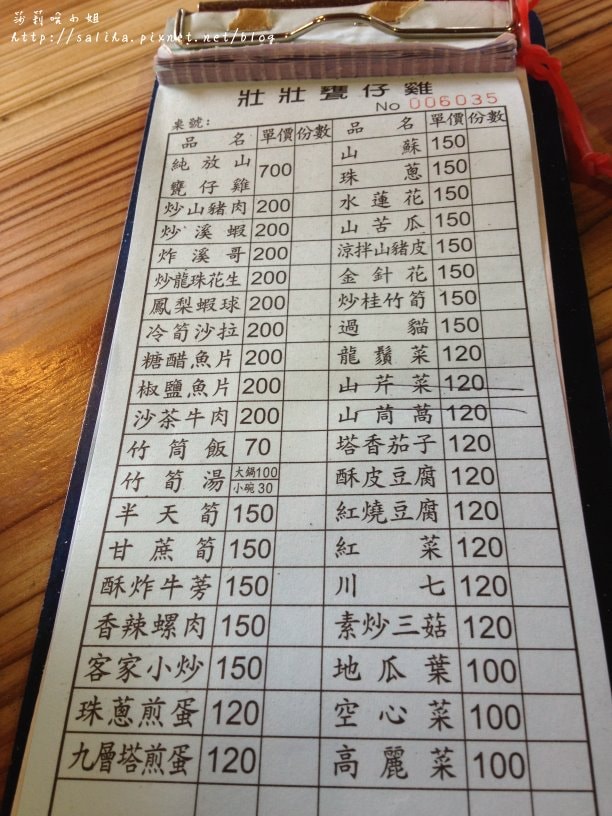 莎莉哈小姐
http://saliha.pixnet.net/blog
壯壯甕仔雞
No 006035
桌號:
品名 單價 份數 品名 單價 份數
純放山甕仔雞 700 山蘇 150
珠蔥 150
炒山豬肉 200 水蓮花 150
炒溪蝦 200 山苦瓜 150
炸溪哥 200 涼拌山豬皮 150
炒龍珠花生 200 金針花 150
鳳梨蝦球 200 炒桂竹筍 150
冷筍沙拉 200 過貓 150
糖醋魚片 200 龍鬚菜 120
椒鹽魚片 200 山芹菜 120
沙茶牛肉 200 山茼蒿 120
竹筒飯 70 塔香茄子 120
竹筍湯 大鍋100 小碗30 酥皮豆腐 120
半天筍 150 紅燒豆腐 120
甘蔗筍 150 紅菜 120
酥炸牛蒡 150 川七 120
香辣螺肉 150 素炒三菇 120
客家小炒 150 地瓜葉 100
珠蔥煎蛋 120 空心菜 100
九層塔煎蛋 120 高麗菜 100